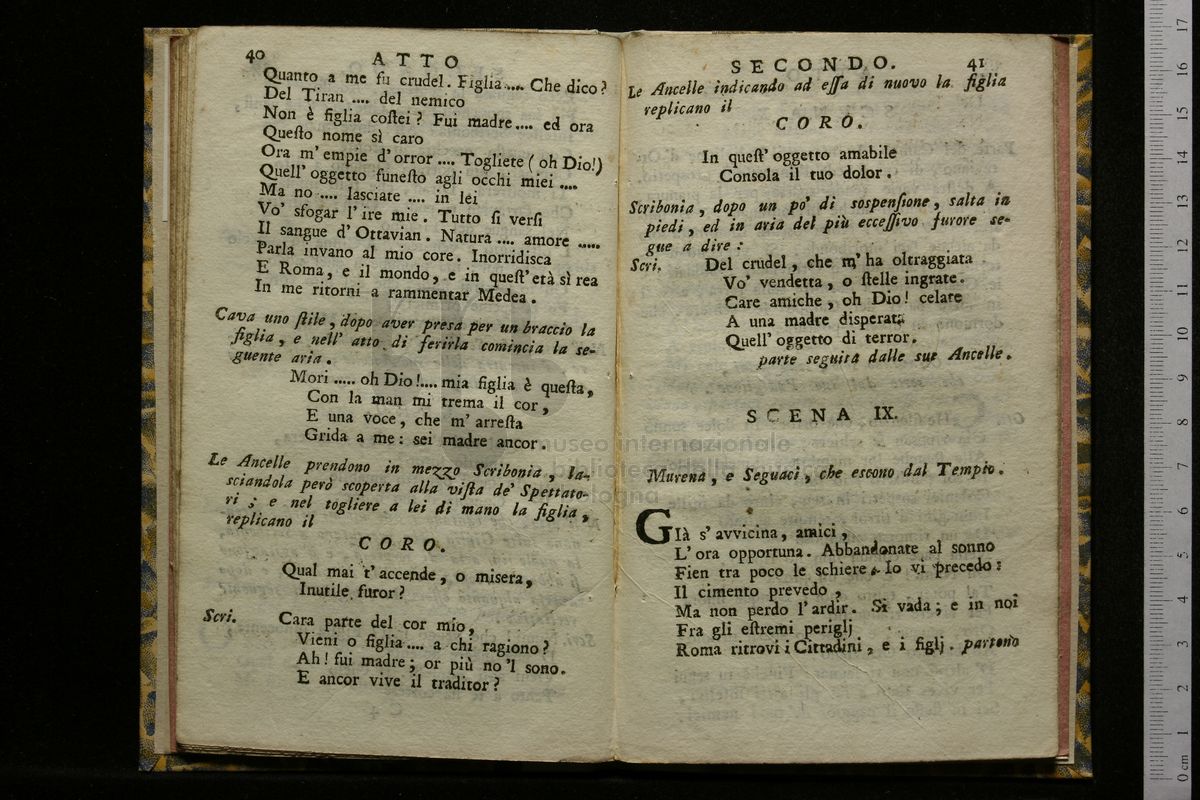 40
ATTO
Quanto a me fu crudel. Figlia.... Che dico?
Del Tiran .... del nemico
Non è figlia coſtei? Fui madre.... ed ora
Queſto nome sì caro
Ora m'empie d'orror .... Togliete (oh Dio!)
Quell'oggetto funeſto agli occhi miei ....
Ma no .... laſciate .... in lei
Vo' sfogar l'ire mie. Tutto ſi verſi
Il ſangue d'Ottavian. Natura .... amore .....
Parla invano al mio core. Inorridiſca
E Roma, e il mondo, e in queſt'età sì rea
In me ritorni a rammentar Medea.
Cava uno ſtile, dopo aver preſa per un braccio la
figlia, e nell'atto di ferirla comincia la ſe-
guente aria.
Mori ..... oh Dio!.... mia figlia è queſta,
Con la man mi trema il cor,
E una voce, che m'arreſta
Grida a me: sei madre ancor.
Le Ancelle prendono in mezzo Scribonia, la-
ſciandola però scoperta alla viſta de' Spettato-
ri; e nel togliere a lei di mano la figlia,
replicano il
CORO.
Qual mai t'accende, o miſera,
Inutile furor?
Scri. Cara parte del cor mio,
Vieni o figlia.... a chi ragiono?
Ah! fui madre; or più no'l sono.
E ancor vive il traditor?
SECONDO. 41
Le Ancelle indicando ad eſſa di nuovo la figlia
replicano il
CORO.
In queſt'oggetto amabile
Conſola il tuo dolor.
Scribonia, dopo un po' di soſpenſione, salta in
piedi, ed in aria del più ecceſſivo furore ſe-
gue a dire:
Scri. Del crudel, che m'ha oltraggiata
Vo' vendetta, o ſtelle ingrate.
Care amiche, oh Dio! celate
A una madre diſperata
Quell'oggetto di terror.
parte seguita dalle sue Ancelle.
SCENA IX.
Murena, e Seguaci, che escono dal Tempio.
GIà s'avvicina, amici,
L'ora opportuna. Abbandonate al sonno
Fien tra poco le schiere. Io vi precedo:
Il cimento prevedo,
Ma non perdo l'ardir. Si vada; e in noi
Fra gli eſtremi periglj
Roma ritrovi i Cittadini, e i figlj. partono
museo internazionale
biblioteca della musica
bologna
0 cm 1 2 3 4 5 6 7 8 9 10 11 12 13 14 15 16 17